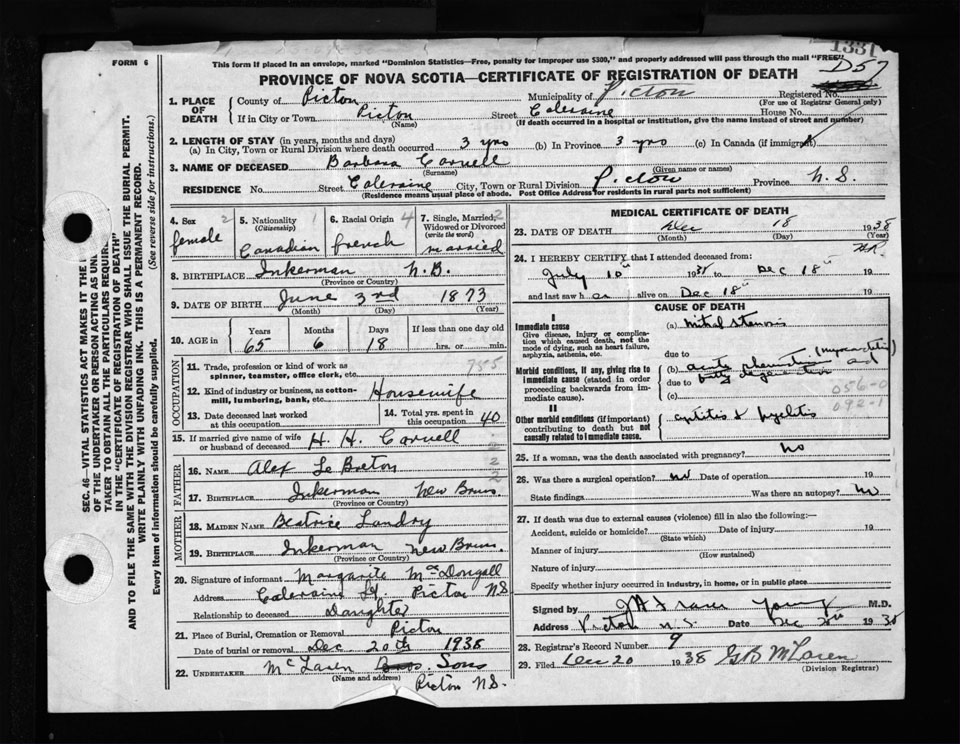 1331
FORM 6
This form if placed in an envelope, marked "Dominion Statistics—Free, penalty for improper use $300," and properly addressed will pass through the mail "FREE"
D57
PROVINCE OF NOVA SCOTIA—CERTIFICATE OF REGISTRATION OF DEATH
SEC. 46—VITAL STATISTICS ACT MAKES IT THE
OF THE UNDERTAKER OR PERSON ACTING AS UN
TAKER TO OBTAIN ALL THE PARTICULARS REQUIRE
IN THE "CERTIFICATE OF REGISTRATION OF DEATH"
AND TO FILE THE SAME WITH THE DIVISION REGISTRAR WHO SHALL ISSUE THE BURIAL PERMIT.
WRITE PLAINLY WITH UNFADING INK. THIS IS A PERMANENT RECORD.
Every Item of Information should be carefully supplied. (See reverse side for instructions.)
1. PLACE OF DEATH County of Pictou Municipality of Pictou Registered No.
(For use of Registrar General only)
If in City or Town Pictou Street Coleraine House No.
(Name) (If death occurred in a hospital or institution, give the name instead of street and number)
2. LENGTH OF STAY (in years, months and days)
(a) In City, Town or Rural Division where death occurred 3 yrs (b) In Province 3 yrs (c) In Canada (if immigrant)
3. NAME OF DECEASED Barbara Cornell
(Surname) (Given name or names)
RESIDENCE No. Street Coleraine City, Town or Rural Division Pictou Province N.S.
(Residence means usual place of abode. Post Office Address for residents in rural parts not sufficient)
4. Sex 2 female
5. Nationality 1 (Citizenship) Canadian
6. Racial Origin 4 french
7. Single, Married, 2 Widowed or Divorced (write the word) married
8. BIRTHPLACE Inkerman N.B.
(Province or Country)
9. DATE OF BIRTH June 3rd 1873
(Month) (Day) (Year)
10. AGE in Years 65 Months 6 Days 18 If less than one day old hrs. or min.
OCCUPATION
11. Trade, profession or kind of work as spinner, teamster, office clerk, etc. 755
12. Kind of industry or business, as cotton-mill, lumbering, bank, etc. Housewife
13. Date deceased last worked at this occupation
14. Total yrs. spent in this occupation 40
15. If married give name of wife or husband of deceased H. H. Cornell
FATHER
16. NAME Alex Le Breton
17. BIRTHPLACE Inkerman New Bruns
(Province or Country)
MOTHER
18. MAIDEN NAME Beatrice Landry
19. BIRTHPLACE Inkerman New Bruns.
(Province or Country)
20. Signature of informant Margarite MacDougall
Address Coleraine St. Pictou NS
Relationship to deceased Daughter
21. Place of Burial, Cremation or Removal Pictou
Date of burial or removal Dec. 20th 1938
22. UNDERTAKER McLaren Sons
(Name and address) Pictou NS.
MEDICAL CERTIFICATE OF DEATH
23. DATE OF DEATH Dec 18 1938
(Month) (Day) (Year)
24. I HEREBY CERTIFY that I attended deceased from:
July 10th 1938 to Dec 18th 19
and last saw her alive on Dec 18th 19
CAUSE OF DEATH
I
Immediate cause
Give disease, injury or complication which caused death, not the mode of dying, such as heart failure, asphyxia, asthenia, etc.
(a) Mitral stenosis
due to
Morbid conditions, if any, giving rise to immediate cause (stated in order proceeding backwards from immediate cause).
(b) and
due to fatty degeneration
(c) 056-0
II
092-1
Other morbid conditions (if important) contributing to death but not causally related to immediate cause.
Cystitis & pyelitis
25. If a woman, was the death associated with pregnancy? no
26. Was there a surgical operation? no Date of operation 19
State findings Was there an autopsy? no
27. If death was due to external causes (violence) fill in also the following:—
Accident, suicide or homicide? Date of injury 19
(State which)
Manner of injury
(How sustained)
Nature of injury
Specify whether injury occurred in industry, in home, or in public place
Signed by Young M.D.
Address Pictou N.S. Date Dec 20th 1938
28. Registrar's Record Number 9
29. Filed Dec 20 1938 G B McLaren
(Division Registrar)